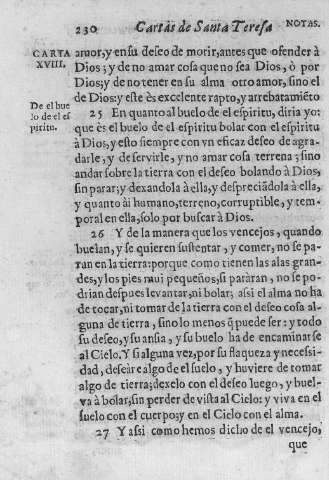 230 Cartas de Santa Teresa NOTAS.
CARTA XVIII.
amor, y en su deseo de morir, antes que ofender à
Dios; y de no amar cosa que no sea Dios, ò por
Dios; y de no tener en su alma otro amor, sino el
de Dios: y este ès excelente rapto, y arrebatamiẽto
De el bue
lo de el es
piritu.
25 En quanto al buelo de el espiritu, diria yo:
que ès el buelo de el espiritu bolar con el espiritu
à Dios, y esto siempre con vn eficaz deseo de agra-
darle, y de servirle, y no amar cosa terrena; sino
andar sobre la tierra con el deseo bolando à Dios,
sin parar; y dexandola à ella, y despreciãdola à ella,
y quanto ài humano, terreno, corruptible, y tem-
poral en ella, solo por buscar à Dios.
26 Y de la manera que los vencejos, quando
buelan, y se quieren sustentar, y comer, no se pa-
ran en la tierra: porque como tienen las alas gran-
des, y los pies mui pequeños, si pararan, no se po-
drian despues levantar, ni bolar; assi el alma no ha
de tocar, ni tomar de la tierra con el deseo cosa al-
guna de tierra, sino lo menos q̃ puede ser: y todo
su deseo, y su ansia, y su buelo ha de encaminarse
al Cielo. Y si alguna vez, por su flaqueza y necessi-
dad, deseàre algo de el suelo, y huviere de tomar
algo de tierra; dexelo con el deseo luego, y buel-
va à bolar, sin perder de vista al Cielo: y viva en el
suelo con el cuerpo; y en el Cielo con el alma.
27 Y assi como hemos dicho de el vencejo,
que